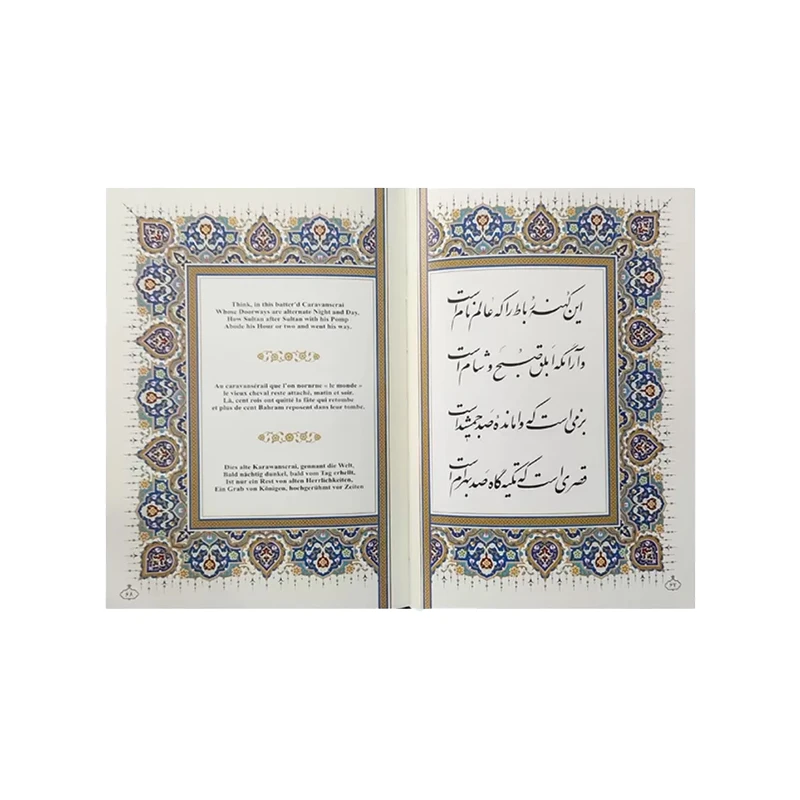 Think, in this batter'd Caravanserai
Whose Doorways are alternate Night and Day,
How Sultan after Sultan with his Pomp
Abode his Hour or two and went his way.
Au caravansérail que l'on norurne « le monde »
le vieux cheval reste attaché, matin et soir.
Là, cent rois ont quitté la fâte qui retombe
et plus de cent Bahram reposent dans leur tombe.
Dies alte Karawanserai, gennant die Welt,
Bald nächtig dunkel, bald vom Tag erhellt,
Ist nur ein Rest von alten Herrlichkeiten,
Ein Grab von Königen, hochgerühmt vor Zeiten
۶۸
این کهنه رباط را که عالم نام است
وآرامگه ابلق صبح و شام است
بزمی است که وامانده صد جمشید است
قصری است که تکیه گاه صد بهرام است
۶۷